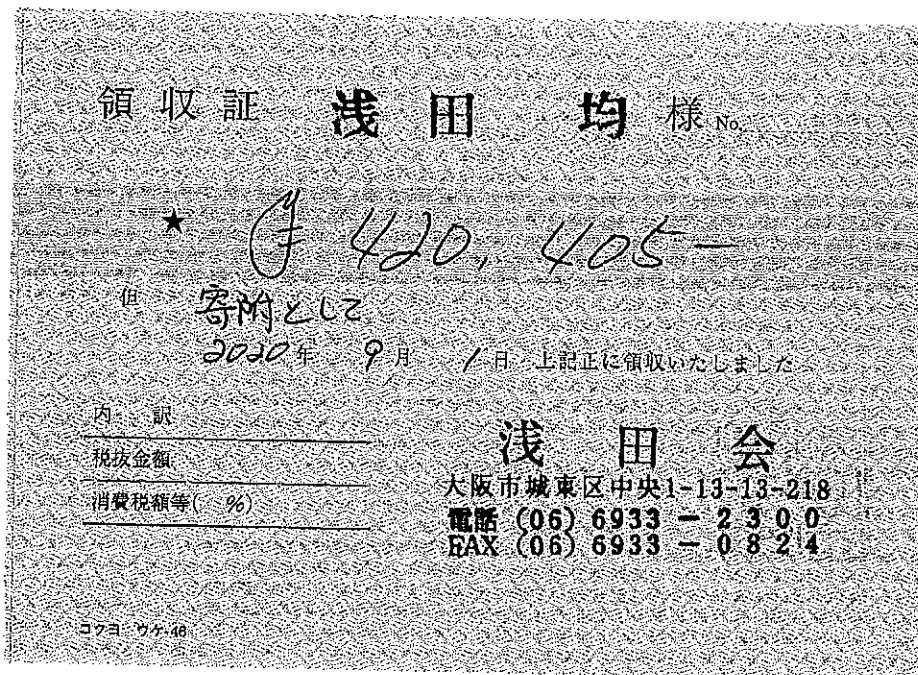 領収証 浅田 均 様 No.
★ ¥420,405—
但 寄附として
2020年 9月 1日 上記正に領収いたしました
内 訳
税抜金額
消費税額等( %)
浅 田 会
大阪市城東区中央1-13-13-218
電話 (06) 6933-2300
FAX (06) 6933-0824
コクヨ ウケ-48